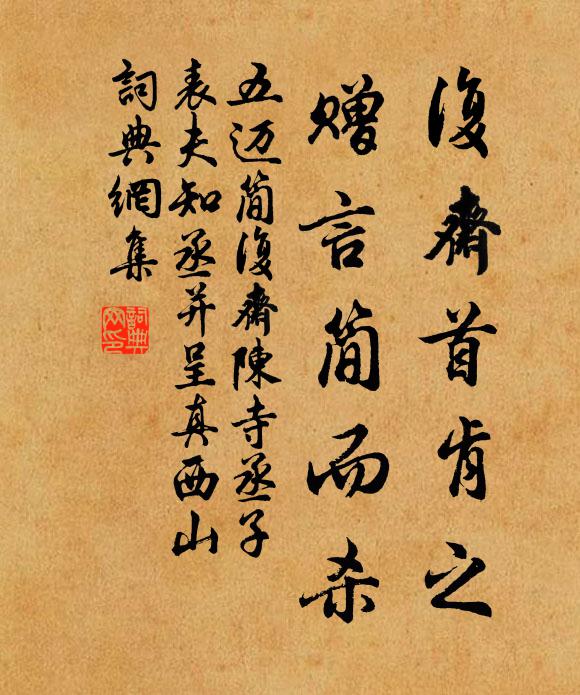 復齋首肯之
贈言簡而杀
五迈簡復齋陳寺丞子
表夫知丞并呈真西山
詞典網集
詞典網印